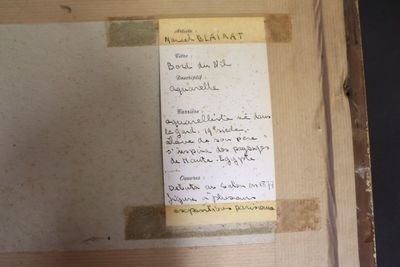 Artiste :
Marcel BLAIRAT
Titre :
Bord du Nil
Descriptif :
aquarelle
Carrière :
aquarelliste né dans
le gard. 19e siècle.
Elève de son père.
s'inspire des paysages
de Haute-Egypte
Oeuvres :
Debuta au Salon en
figure à plusieurs
expositions parisiennes